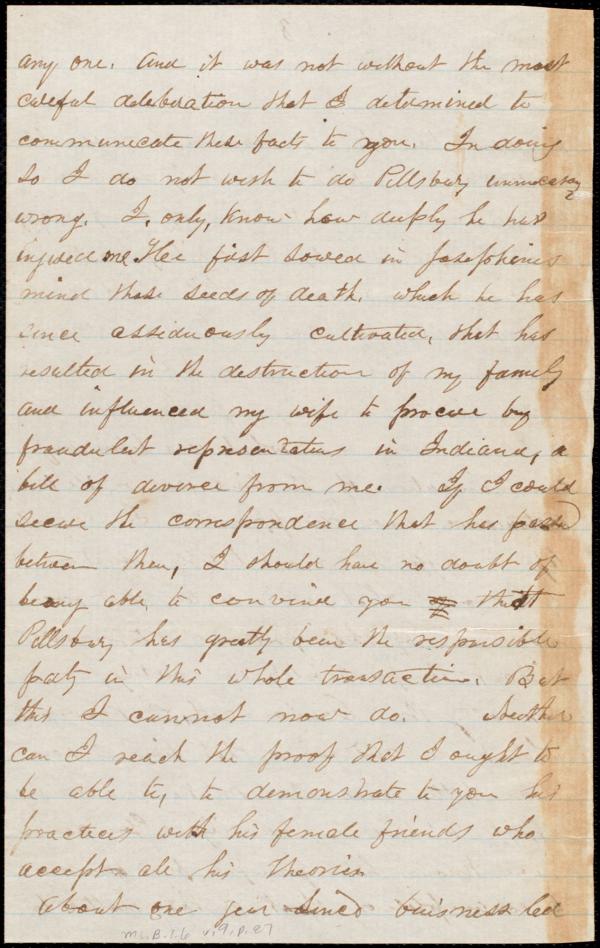 any one. And it was not without the most
careful deliberation that I determined to
communicate these facts to you. In doing
so I do not wish to do Pillsbury unnecessary
wrong. I, only, know how deeply he has
injured me. He first sowed in Josephine's
mind those seeds of death, which he has
since assiduously cultivated, that has
resulted in the destruction of my family
and influenced my wife to procure by
fraudulent representations in Indiana, a
bill of divorce from me. If I could
secure the correspondence that has passed
between them, I should have no doubt of
being able, to convince you that
Pillsbury has greatly been the responsible
party in this whole transaction. But
this I cannot now do. Neither
can I reach the proof that I ought to
be able to, to demonstrate to you his
practices with his female friends who
accept all his theories
About one year since buisness led
Ms.B.1.6 v.9, p.27